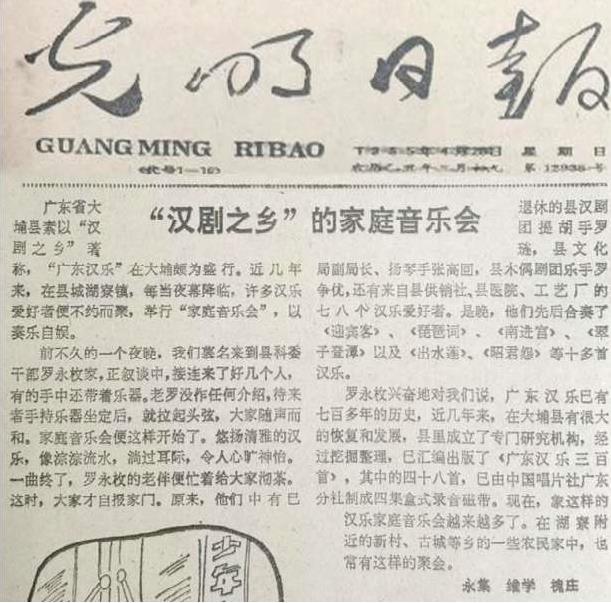 光明日报
GUANGMING RIBAO
星期日
“汉剧之乡”的家庭音乐会
广东省大
埔县素以“汉
剧之乡”著
称，“广东汉乐”在大埔颇为盛行。近几年
来，在县城湖寮镇，每当夜幕降临，许多汉乐
爱好者便不约而聚，举行“家庭音乐会”，以
奏乐自娱。
前不久的一个夜晚，我们慕名来到县科委
干部罗永枚家，正叙谈中，接连来了好几个人，
有的手中还带着乐器。老罗没作任何介绍，待来
者手持乐器坐定后，就拉起头弦，大家随声而
和。家庭音乐会便这样开始了。悠扬清雅的汉
乐，像淙淙流水，淌过耳际，令人心旷神怡。
一曲终了，罗永枚的老伴便忙着给大家沏茶。
这时，大家才自报家门。原来，他们中有已
退休的县汉剧
团提胡手罗
琏，县文化
局副局长、扬琴手张高徊，县木偶剧团乐手罗
争优，还有来自县供销社、县医院、工艺厂的
七八个汉乐爱好者。是晚，他们先后合奏了
《迎宾客》、《琵琶词》、《南进宫》、《翠
子登潭》以及《出水莲》、《昭君怨》等十多首
汉乐。
罗永枚兴奋地对我们说，广东汉乐已有
七百多年的历史，近几年来，在大埔县有很大
的恢复和发展，县里成立了专门研究机构，经
过挖掘整理，已汇编出版了《广东汉乐三百
首》，其中的四十八首，已由中国唱片社广东
分社制成四集盒式录音磁带。现在，象这样的
汉乐家庭音乐会越来越多了。在湖寮附
近的新村、古城等乡的一些农民家中，也
常有这样的聚会。
永集 维学 槐庄
少年